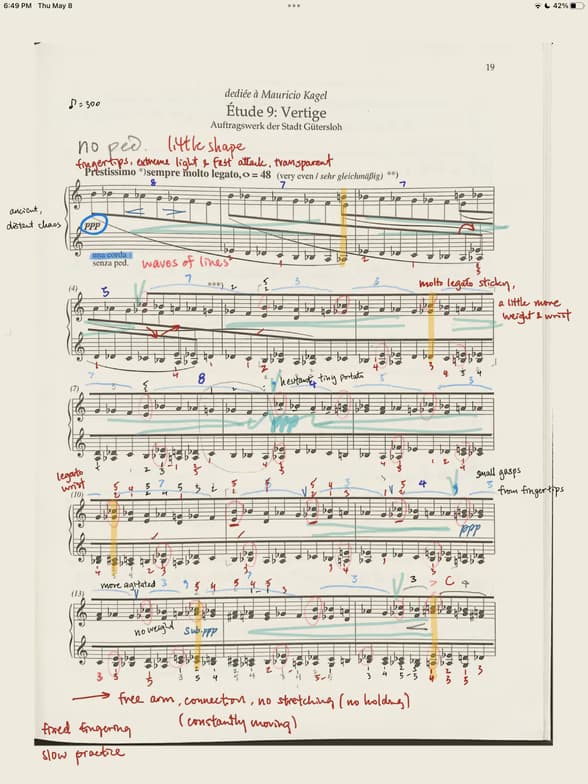 6:49 PM Thu May 8
42%
19
dediée à Mauricio Kagel
♪ = 300
Étude 9: Vertige
Auftragswerk der Stadt Gütersloh
no ped. little shape
fingertips, extreme light & fast attack, transparent
Prestissimo *)sempre molto legato, o = 48 (very even / sehr gleichmäßig) **)
8 7 7
ancient,
distant chaos
ppp
una corda
senza ped.
waves of lines
molto legato sticky,
a little more
weight & wrist
(4)
5
7
***)
(7)
8
hesitant, tiny portato
ppp
legato
wrist
small gasps
from fingertips
(10)
4
ppp
more agitated
(13)
no weight
sub. ppp
→ free arm, connection, no stretching (no holding)
(constantly moving)
fixed fingering
slow practice